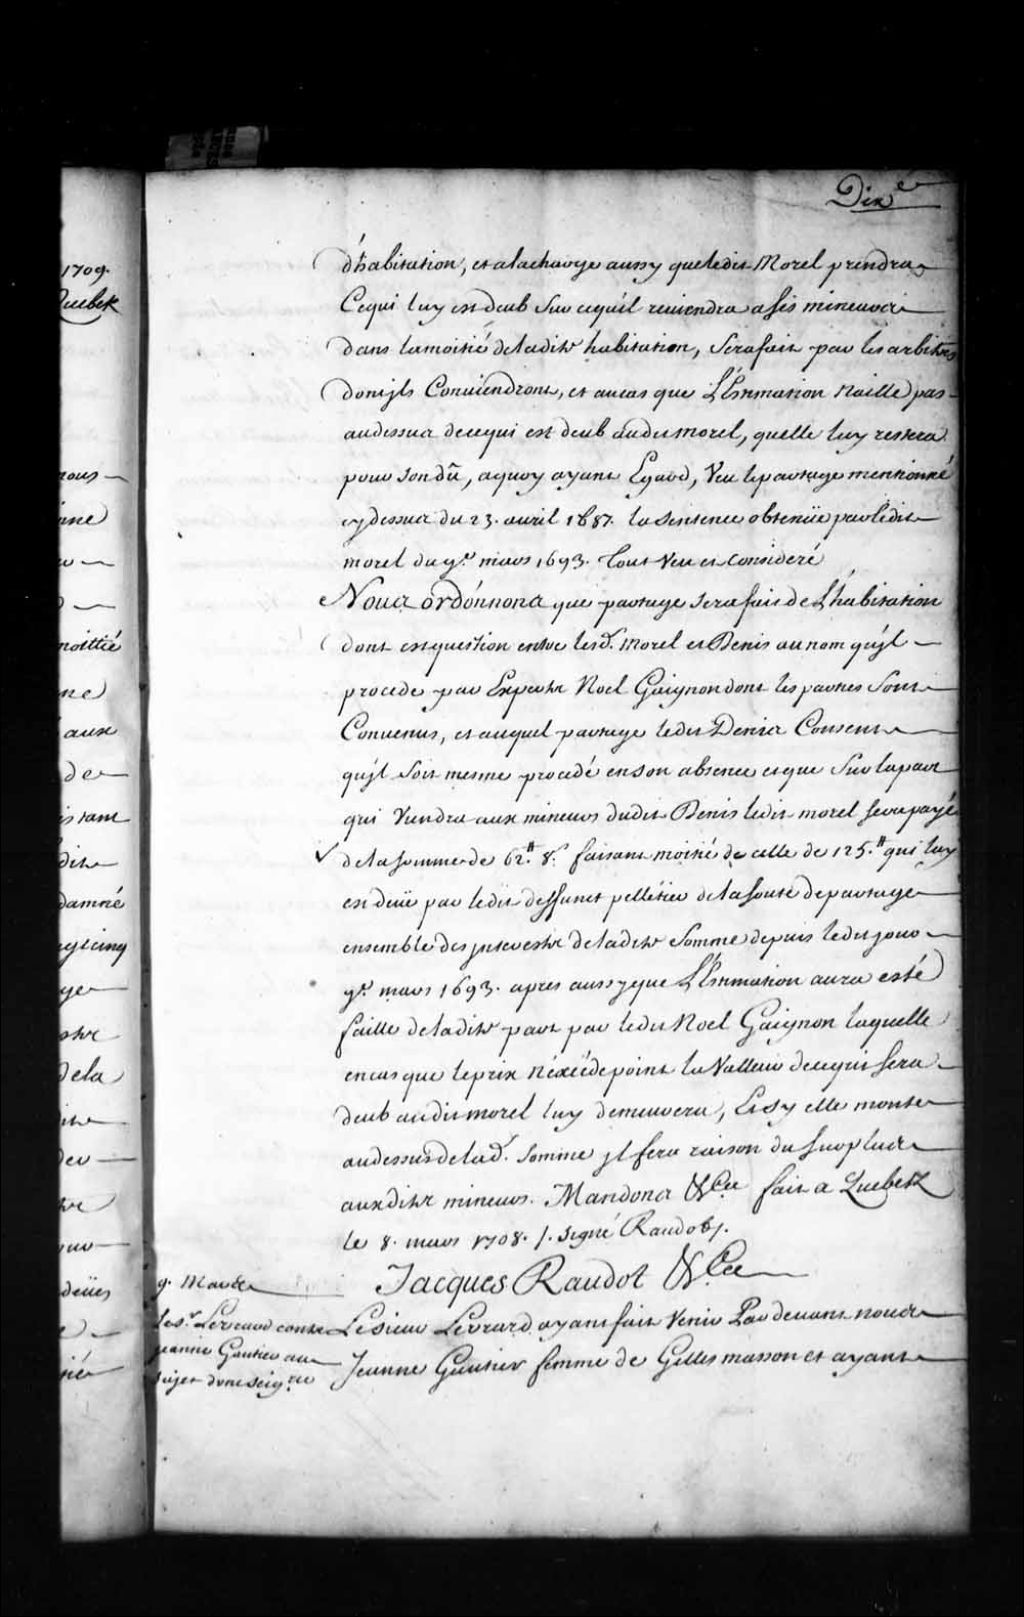 Dix.e
1709.
Quebek
d'habitation, et alacharge aussy queledit Morel prendra
Cequi luy est deub Sur cequ'il reuiendra ases mineurs
dans lamoitié deladite habitation, Serafait par les arbitres
dontjls Conuiendront, et aucas que L'Estimation Naille pas
audessus decequi est deub audit morel, quelle luy restera
pour Son dû, aquoy ayant Egard, Veu lepartage mentionné
cydessus du 23. auril 1687. la Sentence obtenüe parledit
morel du 9.e mars 1693. Tout Veu et Consideré
Nous ordonnons que partage serafait de L'habitation
dont est question entre lesd. Morel et Denis aunom qu'jl
procede par Experte Noel Gaignon dont les parties Sont
Conuenus, et auquel partage ledit Denis Consent
qu'jl Soit mesme procedé enson absence etque Sur lapart
qui Viendra aux mineurs dudit Denis ledit morel serapayé
delasomme de 62.# 8. faisant moitié de celle de 125.# qui luy
est deüe par ledit deffunct pelletier delasoute departage
ensemble des jnterestz deladite Somme depuis ledit jour
9.e mars 1693. apres aussyque L'Estimation aura esté
faitte deladite part par ledit Noel Gaignon laquelle
encas que leprix N'excéde point la Valleur decequi sera
deub audit morel luy demeurera, Et sy elle monte
audessus delad. Somme jl fera raison du surplus
auxdits mineurs. Mandons &c.a fait a Quebek
le 8. mars 1708. /. Signé Raudot /.
Jacques Raudot &c.a
9. Mars
les.r Levrard contre
jeanne Gautier au
sujet dune seig.rie
Lesieur Levrard ayant fait Venir Pardeuant nous
Jeanne Gautier femme de Gilles masson et ayant
nous
moittié
aux
de
dit
damné
dela
deües